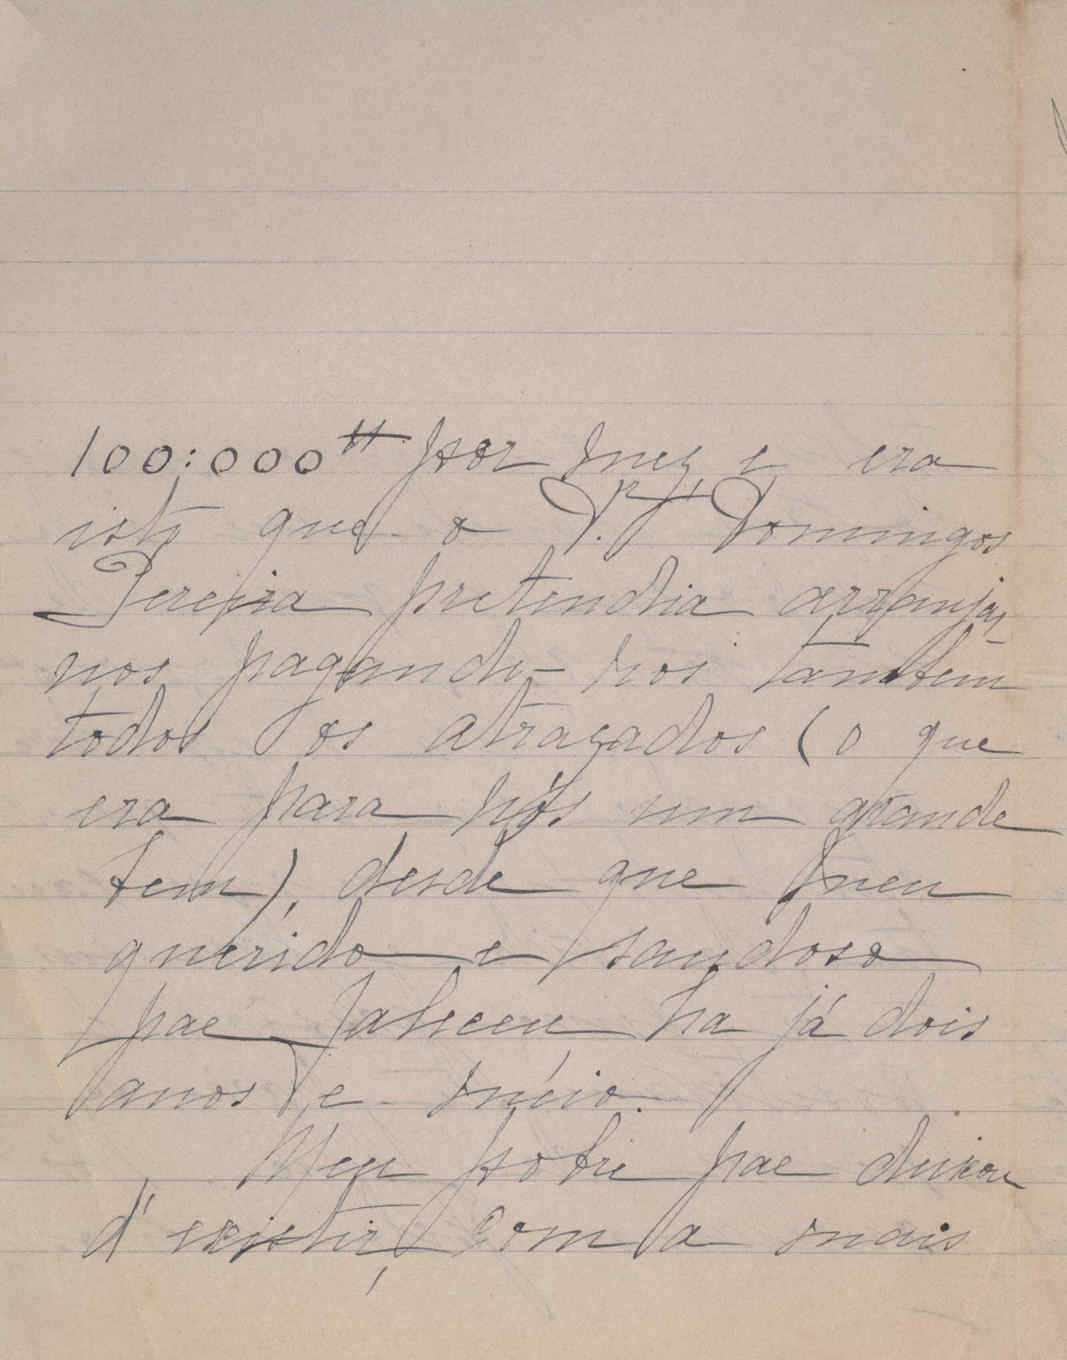 100:000# por mez, e era
isto que o Dr. Domingos
Pereira pretendia arranjar,
nos pagando-nos tambem
todos os atrazados (o que
era para nós um grande
bem), desde que meu
querido e saudoso
pae faleceu ha já dois
anos e meio.
Meu pobre pae deixou
d'existir, com a mais